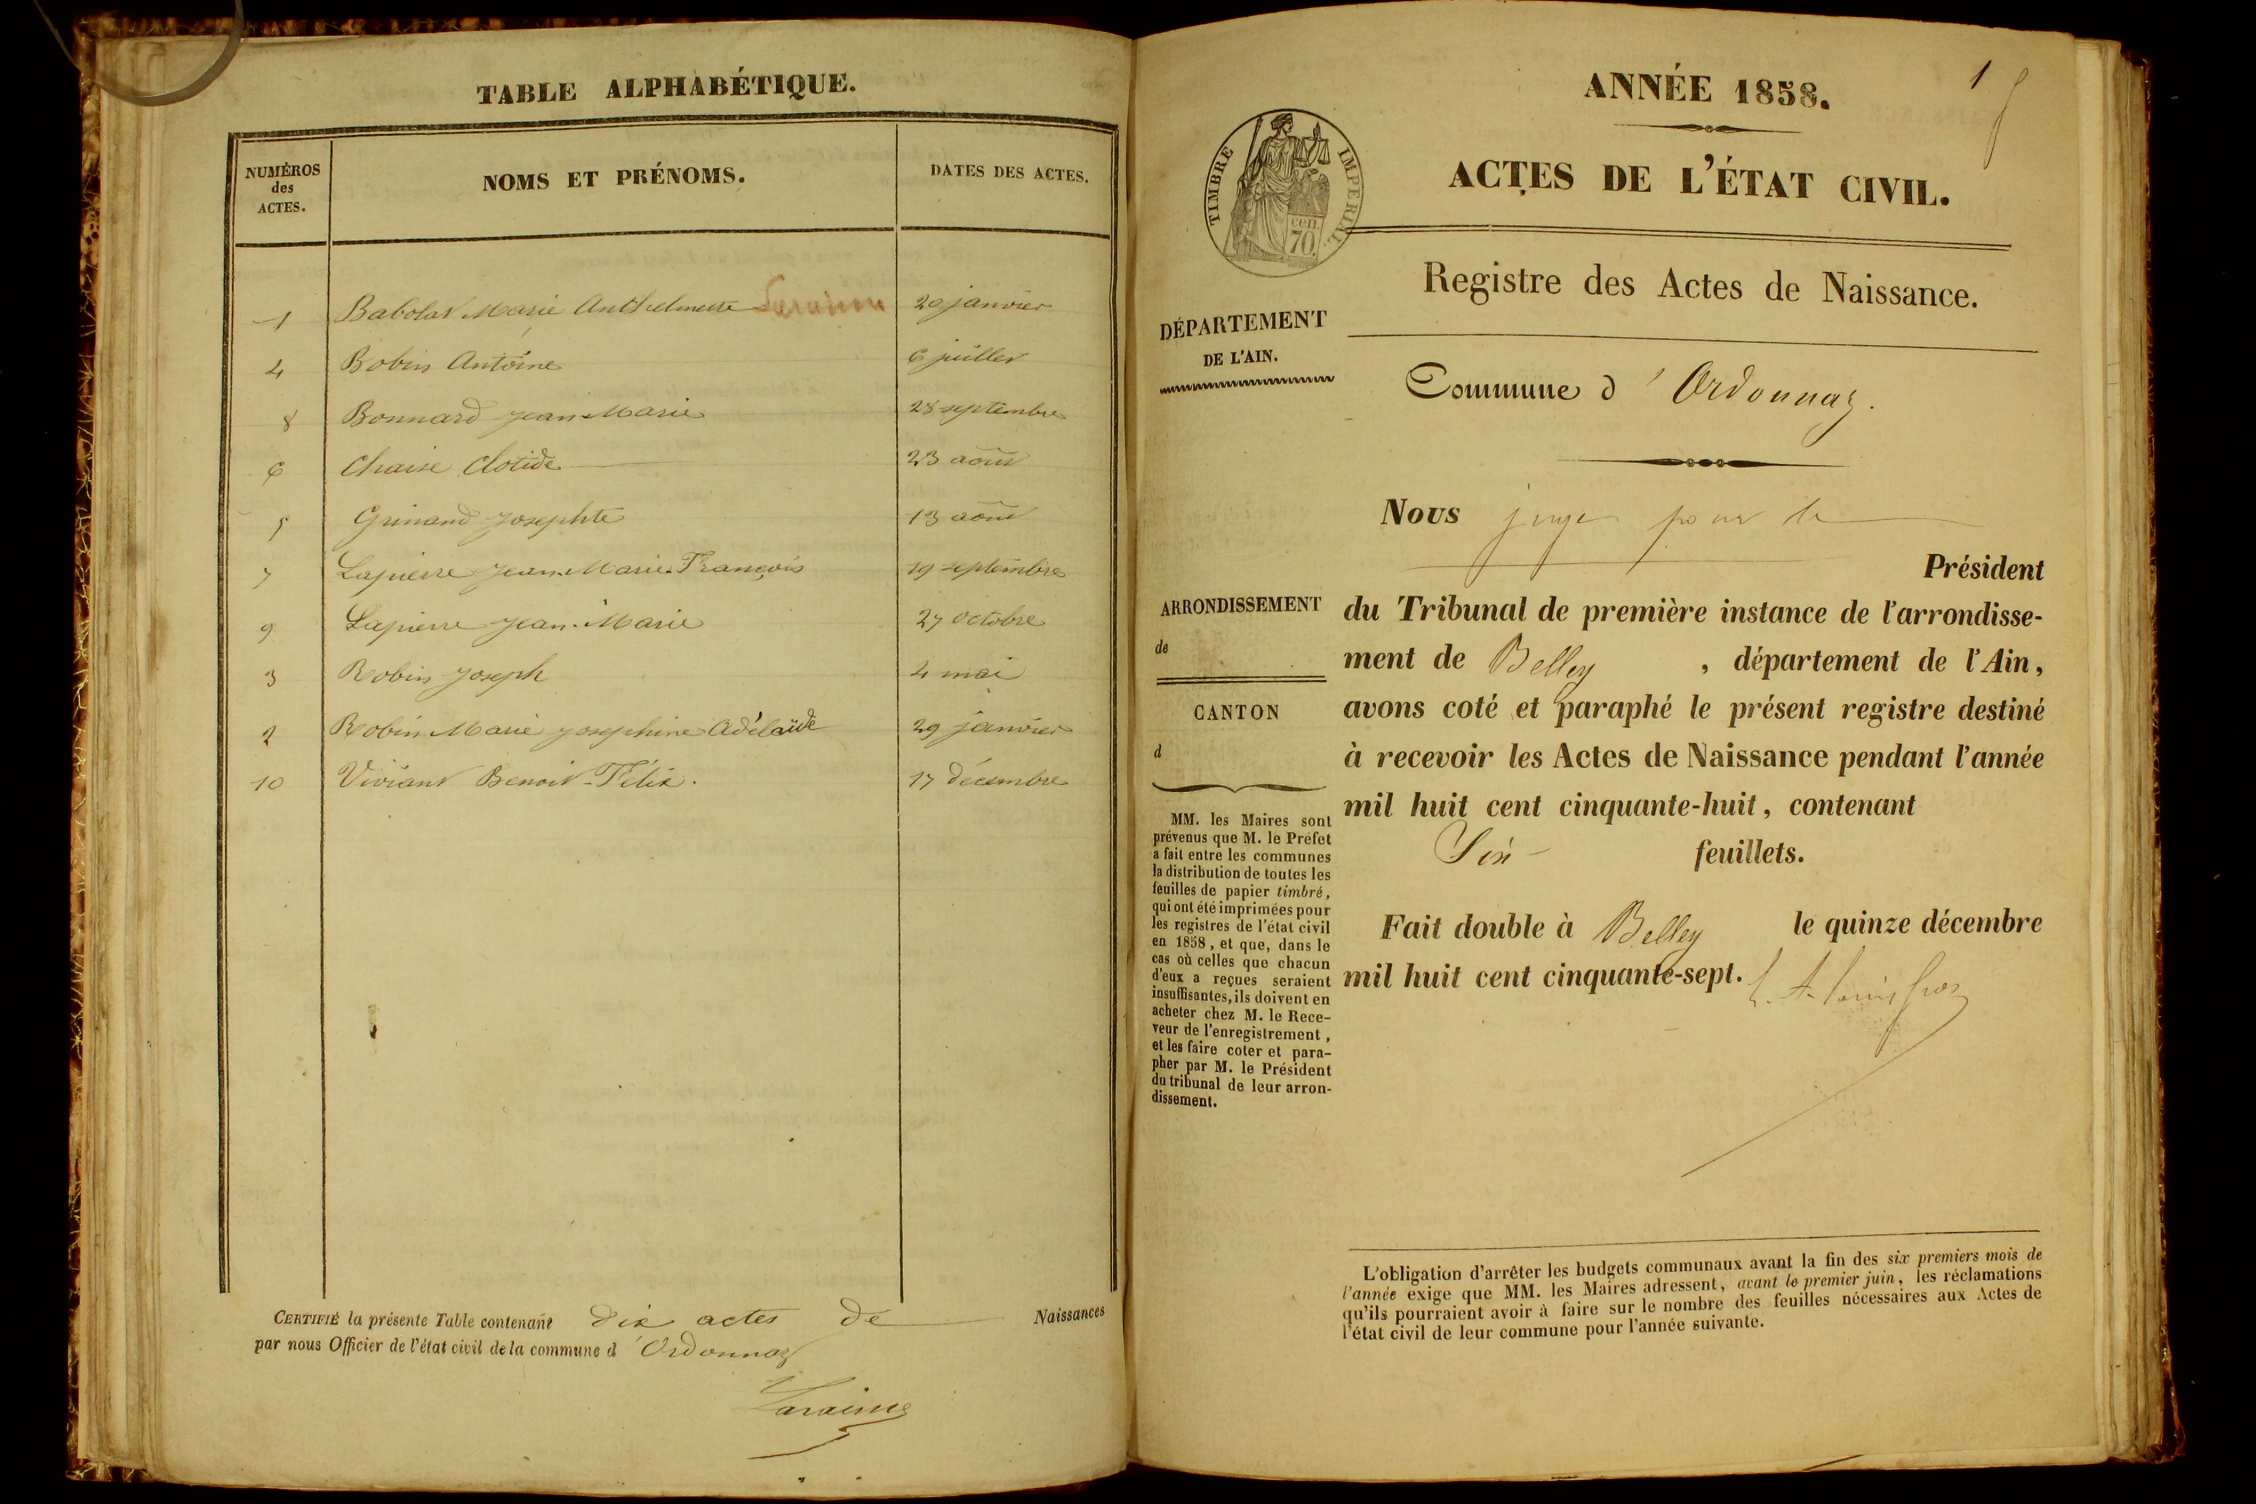 TABLE ALPHABÉTIQUE.
NUMÉROS des ACTES.
NOMS ET PRÉNOMS.
DATES DES ACTES.
1 Babolat Marie Anthelmette 20 janvier
4 Bobin Antoine 6 juillet
8 Bonnard Jean-Marie 28 septembre
6 Chaise Clotide 23 août
5 Grinand Josephte 13 août
7 Lapierre Jean-Marie-François 19 septembre
9 Lapierre Jean-Marie 27 octobre
3 Robin Joseph 4 mai
2 Robin Marie Josephine Adélaïde 29 janvier
10 Viviant Benoit-Félix. 17 décembre
CERTIFIÉ la présente Table contenant dix actes de Naissances
par nous Officier de l'état civil de la commune d'Ordonnaz
1
ANNÉE 1858.
TIMBRE IMPÉRIAL
cen 70.
ACTES DE L'ÉTAT CIVIL.
Registre des Actes de Naissance.
DÉPARTEMENT
DE L'AIN.
Commune d'Ordonnaz.
Nous juge pour le
Président
du Tribunal de première instance de l'arrondisse-
ment de Belley, département de l'Ain,
avons coté et paraphé le présent registre destiné
à recevoir les Actes de Naissance pendant l'année
mil huit cent cinquante-huit, contenant
Six feuillets.
Fait double à Belley le quinze décembre
mil huit cent cinquante-sept.
ARRONDISSEMENT
de
CANTON
d
MM. les Maires sont
prévenus que M. le Préfet
a fait entre les communes
la distribution de toutes les
feuilles de papier timbré,
qui ont été imprimées pour
les registres de l'état civil
en 1858, et que, dans le
cas où celles que chacun
d'eux a reçues seraient
insuffisantes, ils doivent en
acheter chez M. le Rece-
veur de l'enregistrement,
et les faire coter et para-
pher par M. le Président
du tribunal de leur arron-
dissement.
L'obligation d'arrêter les budgets communaux avant la fin des six premiers mois de
l'année exige que MM. les Maires adressent, avant le premier juin, les réclamations
qu'ils pourraient avoir à faire sur le nombre des feuilles nécessaires aux Actes de
l'état civil de leur commune pour l'année suivante.